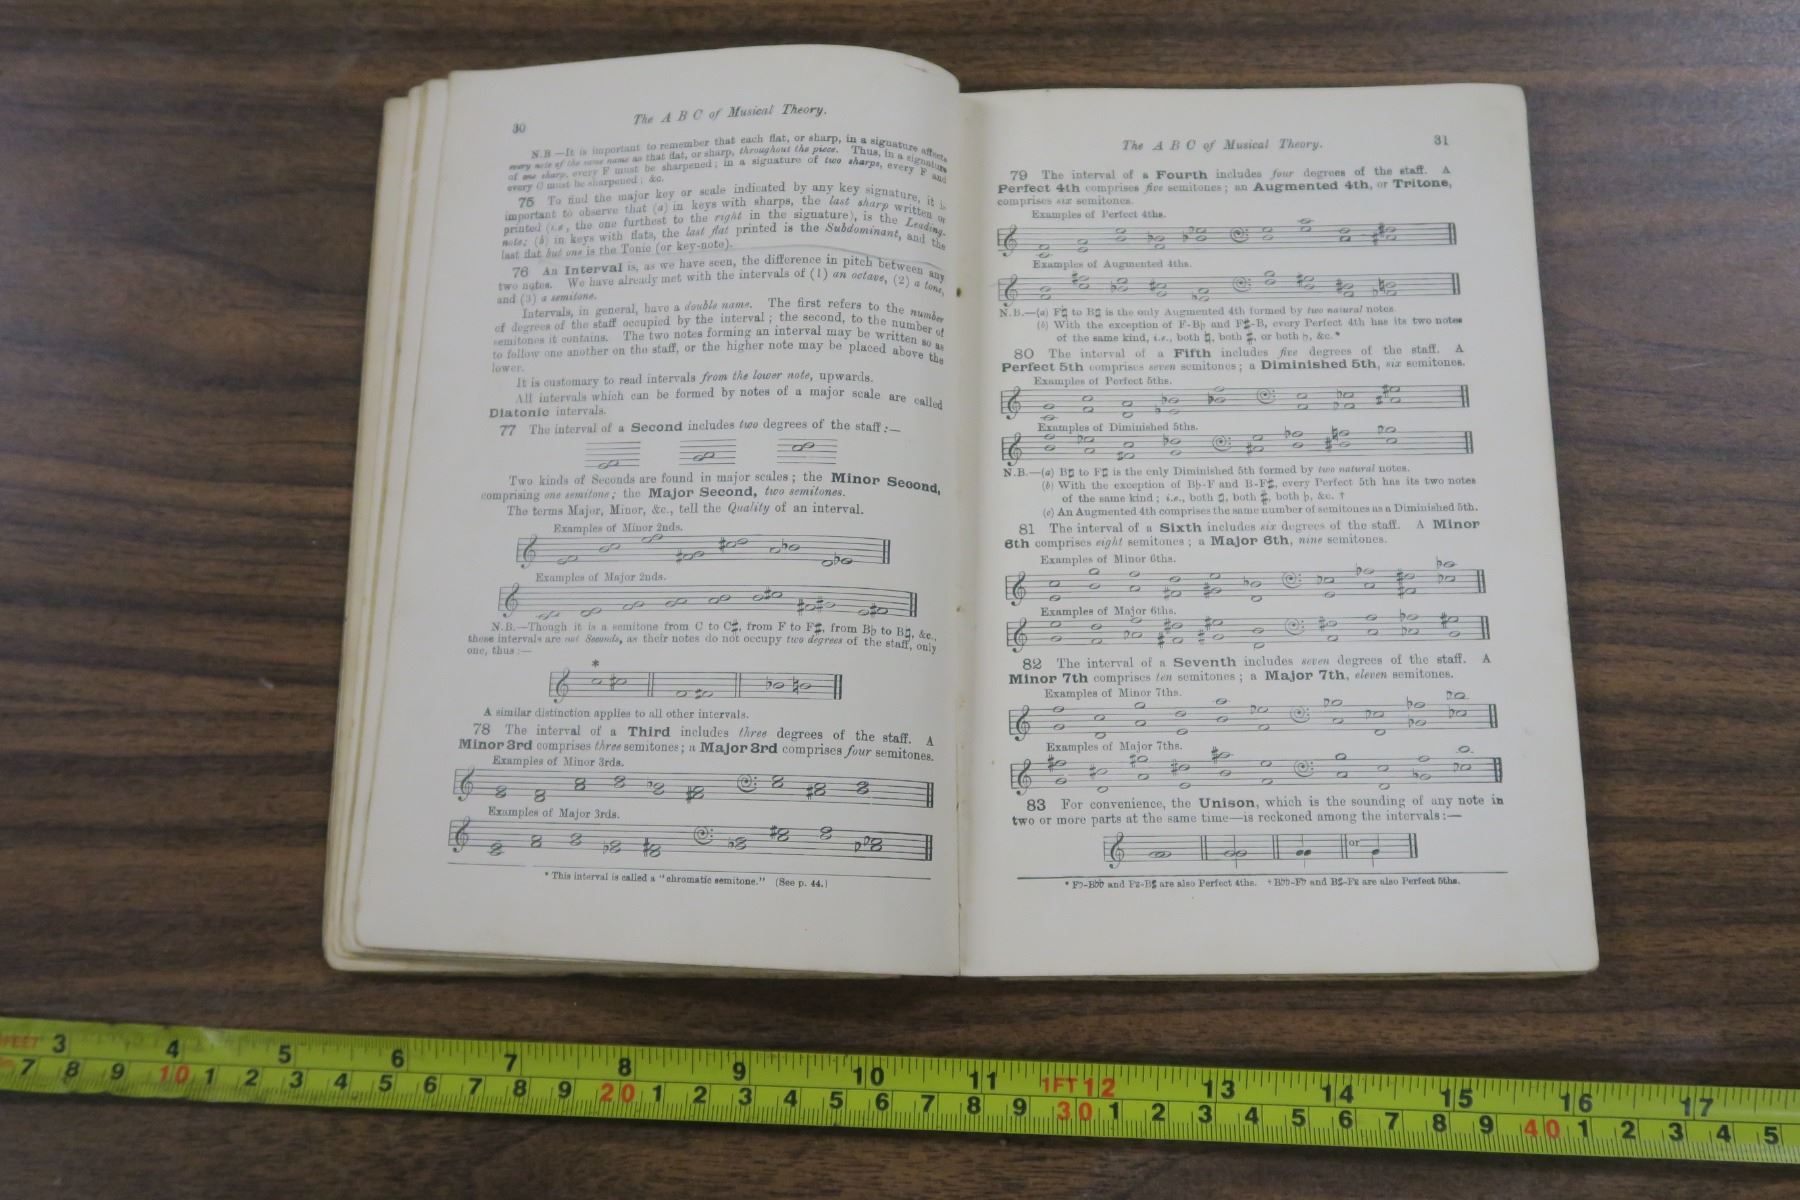 30
The A B C of Musical Theory.
N.B.—It is important to remember that each flat, or sharp, in a signature affects
every note of the same name as that flat, or sharp, throughout the piece. Thus, in a signature
of one sharp, every F must be sharpened; in a signature of two sharps, every F and
every C must be sharpened; &c.
75 To find the major key or scale indicated by any key signature, it is
important to observe that (a) in keys with sharps, the last sharp written or
printed (i.e., the one furthest to the right in the signature), is the Leading-
note; (b) in keys with flats, the last flat printed is the Subdominant, and the
last flat but one is the Tonic (or key-note).
76 An Interval is, as we have seen, the difference in pitch between any
two notes. We have already met with the intervals of (1) an octave, (2) a tone,
and (3) a semitone.
Intervals, in general, have a double name. The first refers to the number
of degrees of the staff occupied by the interval; the second, to the number of
semitones it contains. The two notes forming an interval may be written so as
to follow one another on the staff, or the higher note may be placed above the
lower.
It is customary to read intervals from the lower note, upwards.
All intervals which can be formed by notes of a major scale are called
Diatonic intervals.
77 The interval of a Second includes two degrees of the staff:—
Two kinds of Seconds are found in major scales; the Minor Second,
comprising one semitone; the Major Second, two semitones.
The terms Major, Minor, &c., tell the Quality of an interval.
Examples of Minor 2nds.
Examples of Major 2nds.
N.B.—Though it is a semitone from C to C♯, from F to F♯, from B♭ to B♮, &c.,
these intervals are not Seconds, as their notes do not occupy two degrees of the staff, only
one, thus:—
*
A similar distinction applies to all other intervals.
78 The interval of a Third includes three degrees of the staff. A
Minor 3rd comprises three semitones; a Major 3rd comprises four semitones.
Examples of Minor 3rds.
Examples of Major 3rds.
* This interval is called a "chromatic semitone." (See p. 44.)
The A B C of Musical Theory.
31
79 The interval of a Fourth includes four degrees of the staff. A
Perfect 4th comprises five semitones; an Augmented 4th, or Tritone,
comprises six semitones.
Examples of Perfect 4ths.
Examples of Augmented 4ths.
N.B.—(a) F♮ to B♮ is the only Augmented 4th formed by two natural notes.
(b) With the exception of F-B♭ and F♯-B, every Perfect 4th has its two notes
of the same kind, i.e., both ♮, both ♯, or both ♭, &c.*
80 The interval of a Fifth includes five degrees of the staff. A
Perfect 5th comprises seven semitones; a Diminished 5th, six semitones.
Examples of Perfect 5ths.
Examples of Diminished 5ths.
N.B.—(a) B♮ to F♮ is the only Diminished 5th formed by two natural notes.
(b) With the exception of B♭-F and B-F♯, every Perfect 5th has its two notes
of the same kind; i.e., both ♮, both ♯, both ♭, &c. †
(c) An Augmented 4th comprises the same number of semitones as a Diminished 5th.
81 The interval of a Sixth includes six degrees of the staff. A Minor
6th comprises eight semitones; a Major 6th, nine semitones.
Examples of Minor 6ths.
Examples of Major 6ths.
82 The interval of a Seventh includes seven degrees of the staff. A
Minor 7th comprises ten semitones; a Major 7th, eleven semitones.
Examples of Minor 7ths.
Examples of Major 7ths.
83 For convenience, the Unison, which is the sounding of any note in
two or more parts at the same time—is reckoned among the intervals:—
or
* F♭-B♭♭ and F𝄪-B♯ are also Perfect 4ths. † B♭♭-F♭ and B♯-F𝄪 are also Perfect 5ths.
FEET 3 4 5 6 7 8 9 10 11 1FT 12 13 14 15 16 17
7 8 9 10 1 2 3 4 5 6 7 8 9 20 1 2 3 4 5 6 7 8 9 30 1 2 3 4 5 6 7 8 9 40 1 2 3 4 5